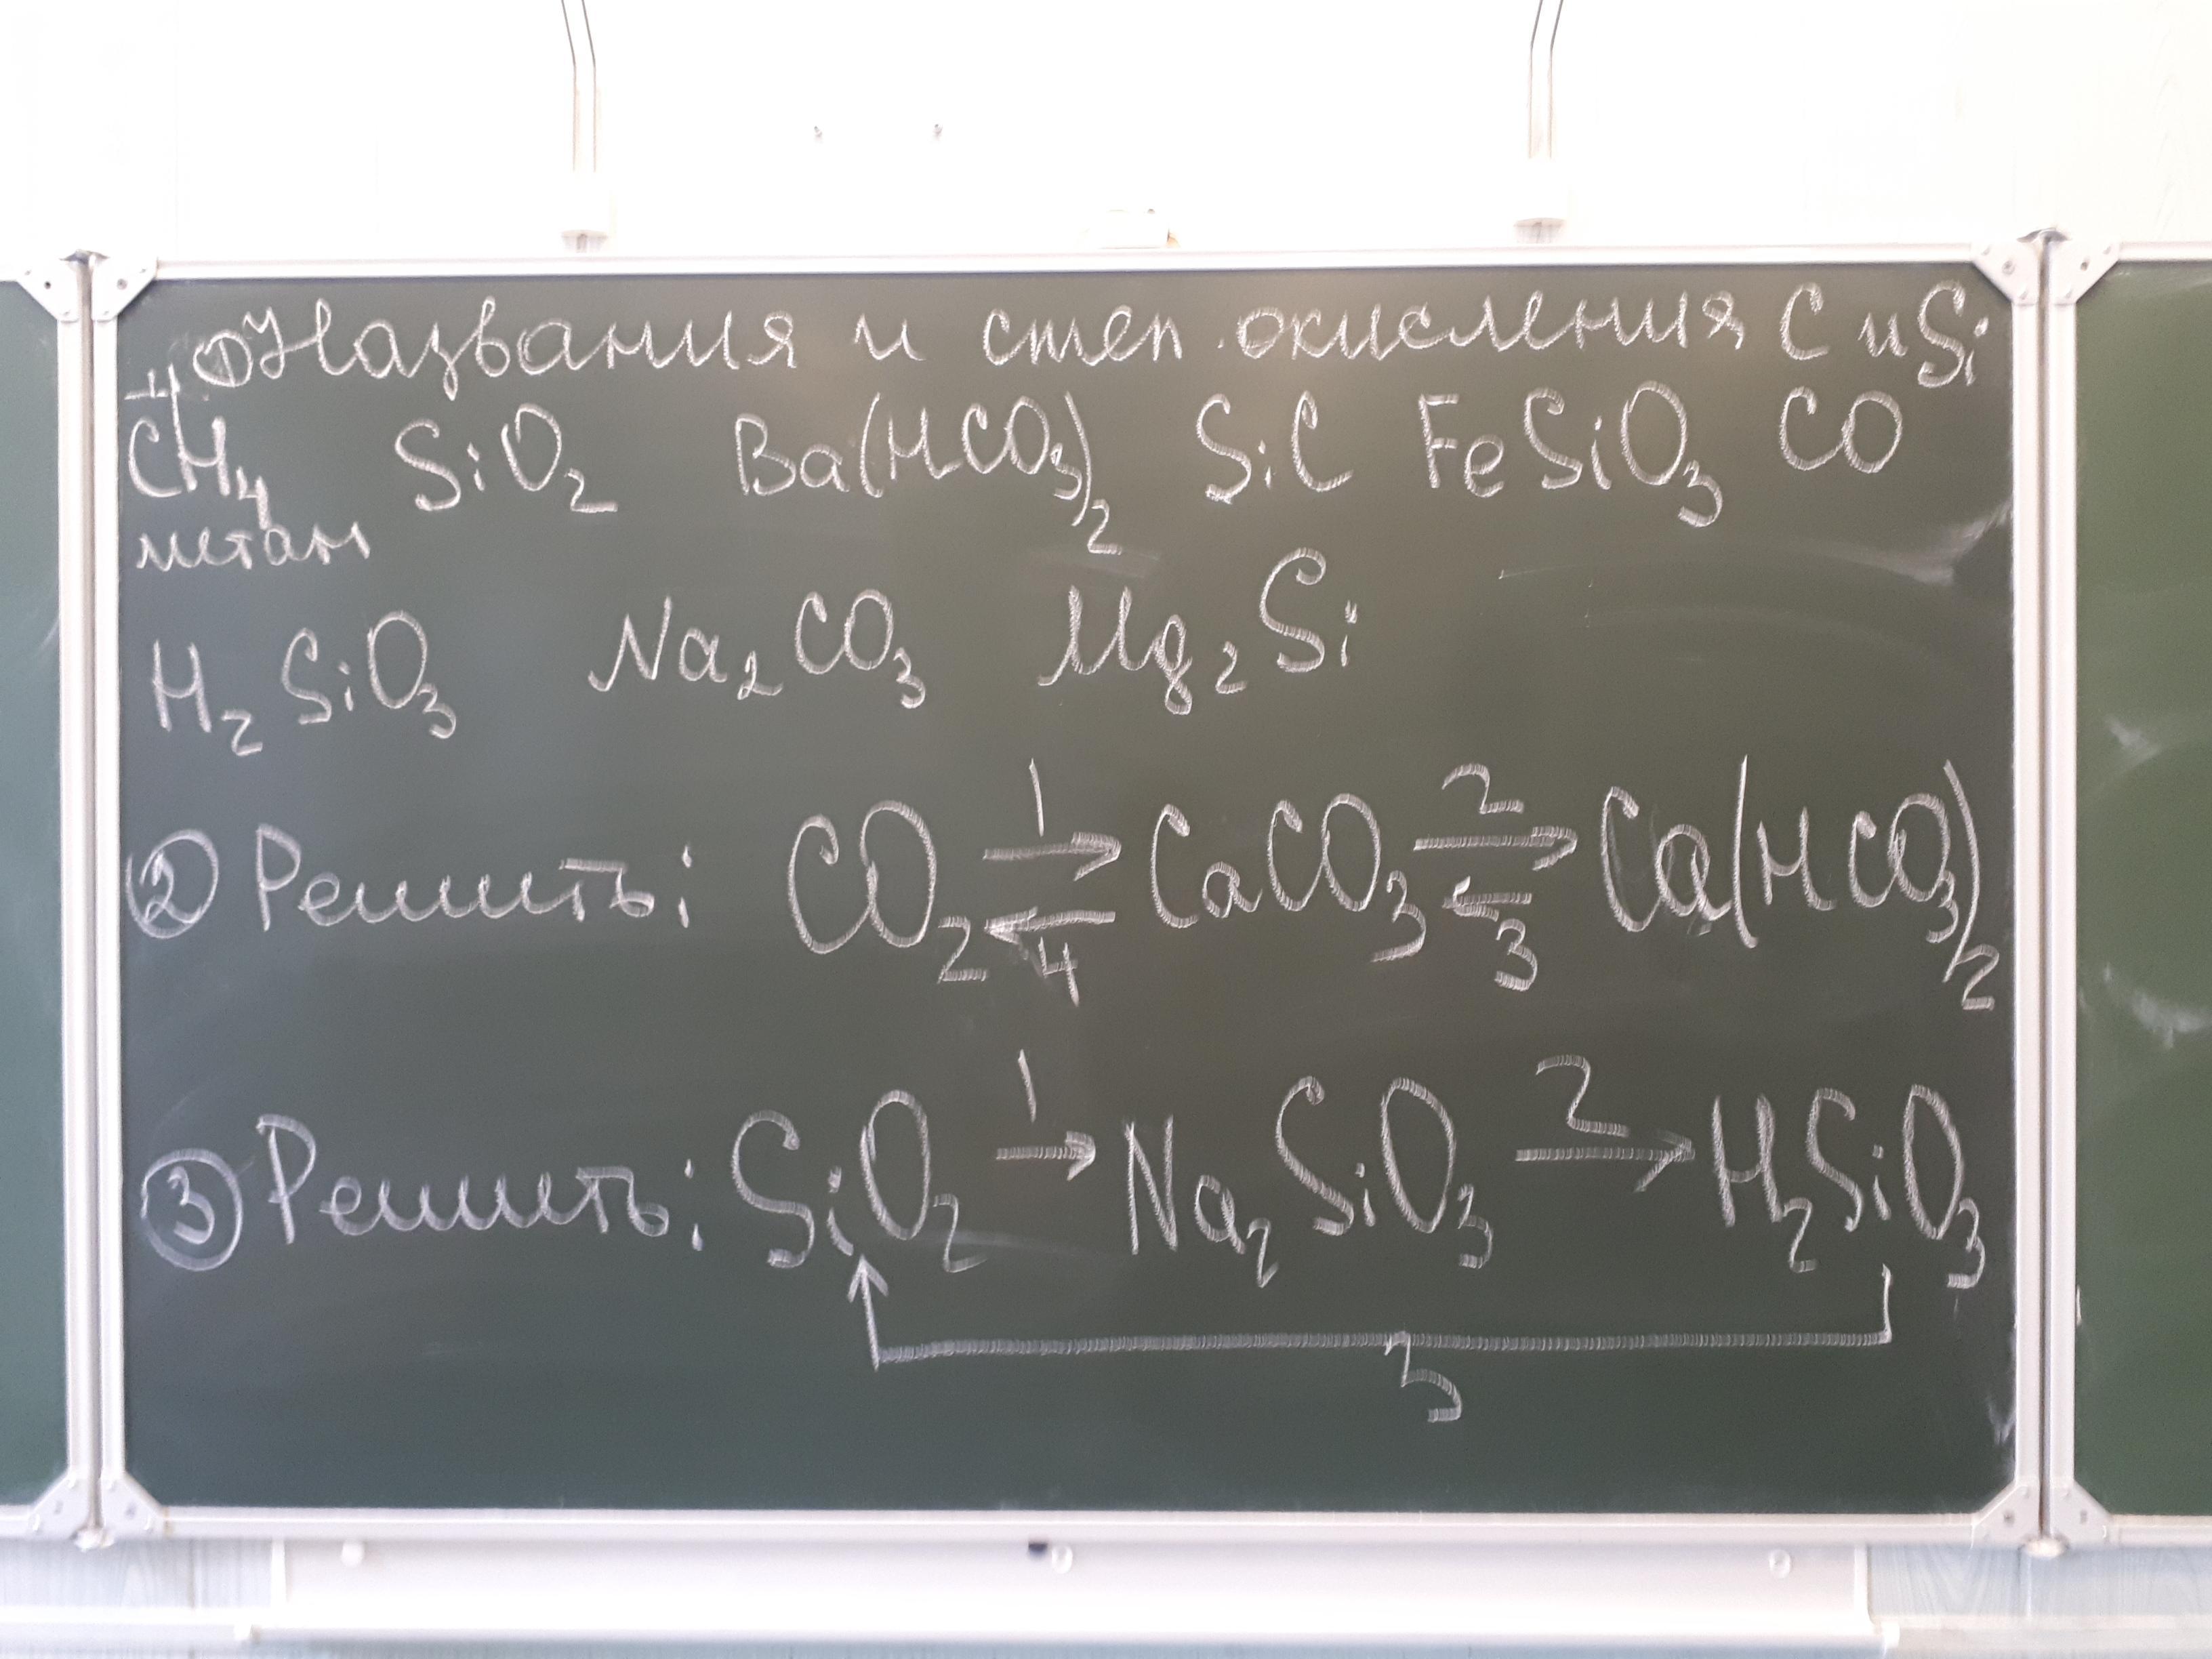 ① Названия и степ. окисления C и Si
-4
CH₄ SiO₂ Ba(HCO₃)₂ SiC FeSiO₃ CO
метан
H₂SiO₃ Na₂CO₃ Mg₂Si
② Решить: CO₂ ⇄ CaCO₃ ⇄ Ca(HCO₃)₂
1 2
4 3
③ Решить: SiO₂ → Na₂SiO₃ → H₂SiO₃
1 2
3